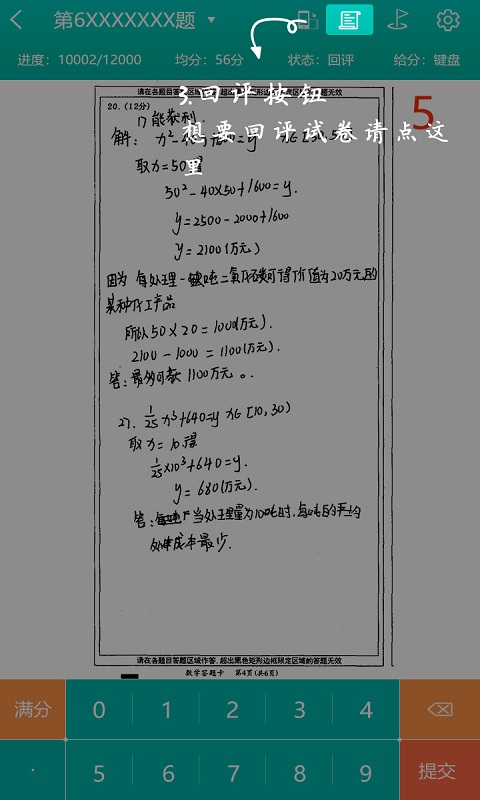 第6XXXXXXX题
进度：10002/12000 均分：56分 状态：回评 给分：键盘
3.回评按钮
想要回评试卷请点这里
5
请在各题目答题区域作答，超出黑色矩形边框限定区域的答题无效
20.（12分）
(1) 能获利
解：
取x=50得
50²-40×50+1600=y.
y=2500-2000+1600
y=2100(万元)
因为 每处理一吨二氧化碳可得价值为20万元的
某种化工产品
所以50×20=1000(万元).
2100-1000=1100(万元).
答：最多可获1100万元。
27. 1/25 x³+640=y x∈[10,30)
取x=10得
1/25×10³+640=y.
y=680(万元).
答：当处理量为10吨时,每吨的平均
处理成本最少.
请在各题目答题区域作答，超出黑色矩形边框限定区域的答题无效
数学答题卡 第4页(共6页)
满分 0 1 2 3 4
. 5 6 7 8 9 提交